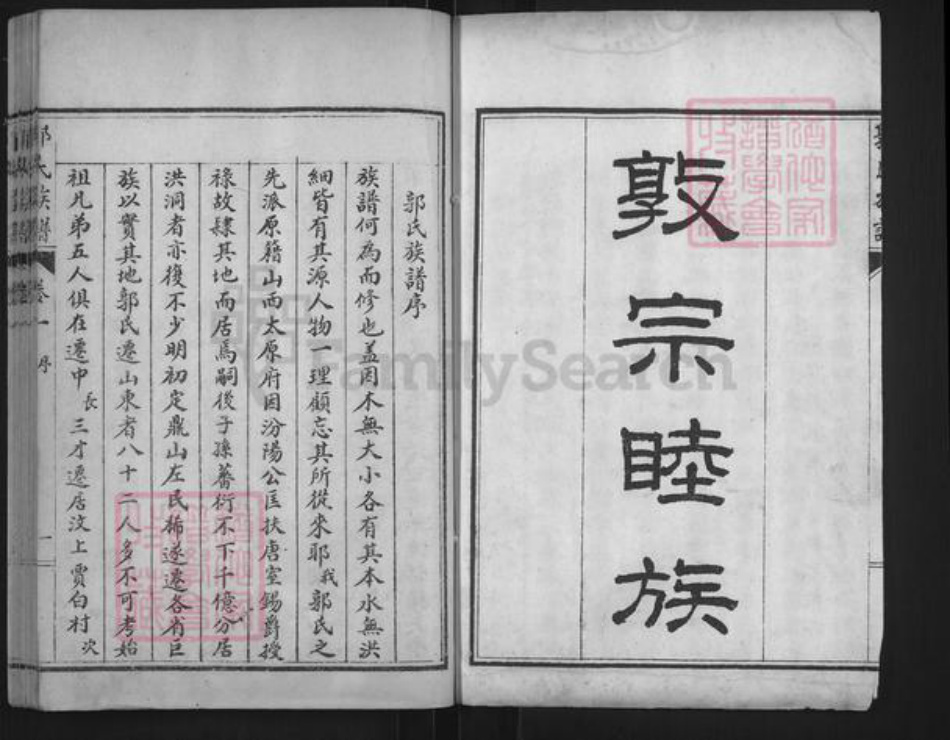 敦宗睦族
郭氏族譜序
族譜何為而修也盖因木無大小各有其本水無洪
細皆有其源人物一理顧忘其所從來耶我郭氏之
先派原籍山西太原府因汾陽公匡扶唐室錫爵授
祿故肄其地而居焉嗣後子孫蕃衍不下千億分居
洪洞者亦復不少明初定鼎山左民稀遂遷各省巨
族以實其地郭氏遷山東者八十二人多不可考始
祖兄弟五人俱在遷中長三才遷居汶上賈白村次
郭氏族譜 卷一 序 一
FamilySearch